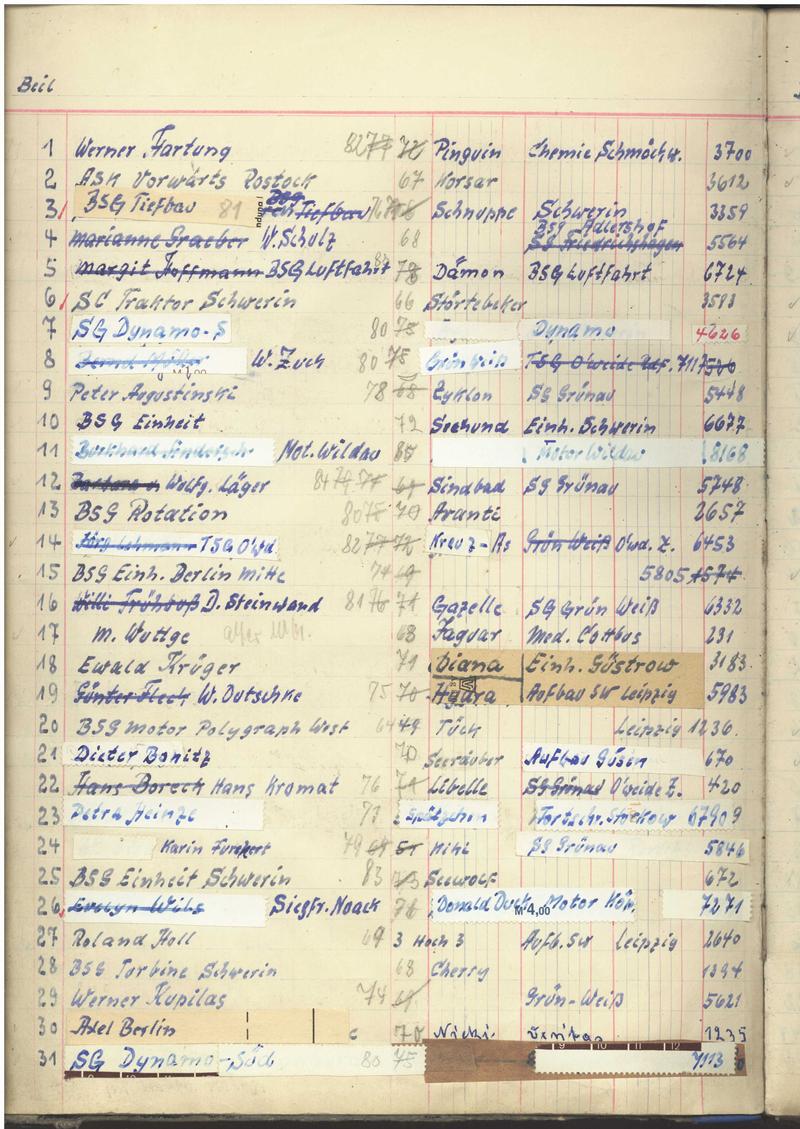 Beil
1 Werner Hartung 82 77 72 Pinguin Chemie Schmöckw. 3700
2 ASK Vorwärts Rostock 67 Korsar 3612
3 BSG Tiefbau 81 BSG Tiefbau Schnuppe Schwerin 3359
4 Marianne Graeber W. Schulz 68 BSG Adlershof SG Friedrichshagen 5564
5 Margit Hoffmann BSG Luftfahrt 78 Dämon BSG Luftfahrt 6724
6 SC Traktor Schwerin 66 Störtebeker 3583
7 SG Dynamo-S 80 75 Dynamo 4626
8 Bernd Möller W. Zuch 80 75 Grün Weiß TSG O'weide 7117
9 Peter Augustinski 78 68 Zyklon SG Grünau 5448
10 BSG Einheit 72 Seehund Einh. Schwerin 6677
11 Burkhard Mot. Wildau 85 Motor Wildau 8168
12 Wolfg. Läger 84 79 74 69 Sindbad SG Grünau 5748
13 BSG Rotation 80 75 70 Avanti 2657
14 Jörg Lehmann TSG O'wd. 82 77 72 Kreuz-As Grün Weiß O'wd. Z. 6453
15 BSG Einh. Berlin Mitte 74 69 5805 4574
16 Willi Frühbuß D. Steinwand 81 76 71 Gazelle SG Grün Weiß 6332
17 M. Wuttge 68 Jaguar Med. Cottbus 231
18 Ewald Krüger 71 Diana Einh. Güstrow 3183
19 Günter Fleck W. Dutschke 75 70 Hydra Aufbau SW Leipzig 5983
20 BSG Motor Polygraph West 64 49 Tück Leipzig 1236
21 Dieter Bonitz 70 Seeräuber Aufbau Güsen 670
22 Hans Borech Hans Kromat 76 71 Libelle SG Grünau O'weide Z. 420
23 Petra Heinze 73 Spätzchen Fortschr. Storkow 67909
24 Karin Furkert 79 69 51 Kiki SG Grünau 5846
25 BSG Einheit Schwerin 83 73 Seewolf 672
26 Evelyn Wils Siegfr. Noack 76 Donald Duck M 4,00 Motor Köp. 7271
27 Roland Holl 69 3 Hoch 3 Aufb. SW Leipzig 2640
28 BSG Turbine Schwerin 68 Cherry 1394
29 Werner Kupilas 74 69 Grün-Weiß 5621
30 Axel Berlin 70 Nicki 1235
31 SG Dynamo-Süd 80 75 7113